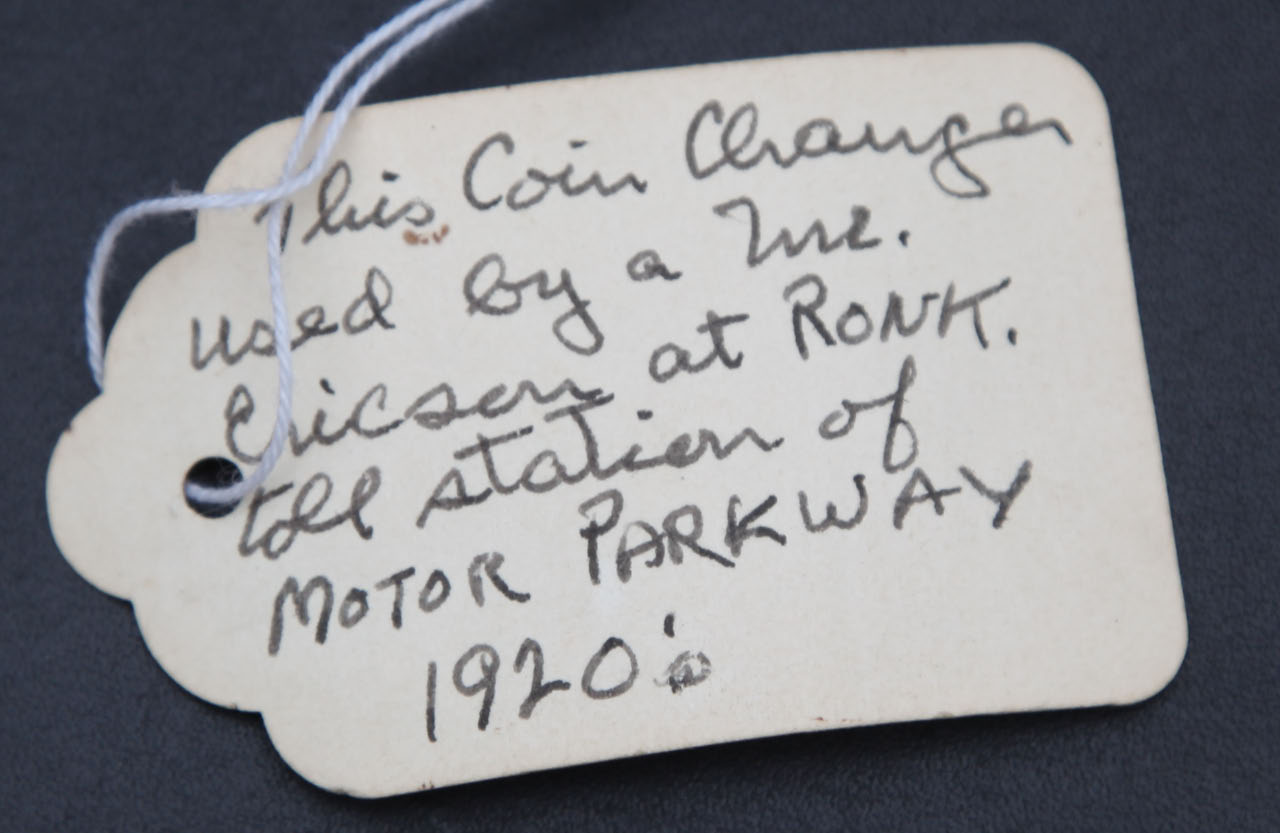 This Coin Changer
used by a Mr.
Ericson at RONK.
toll station of
MOTOR PARKWAY
1920's